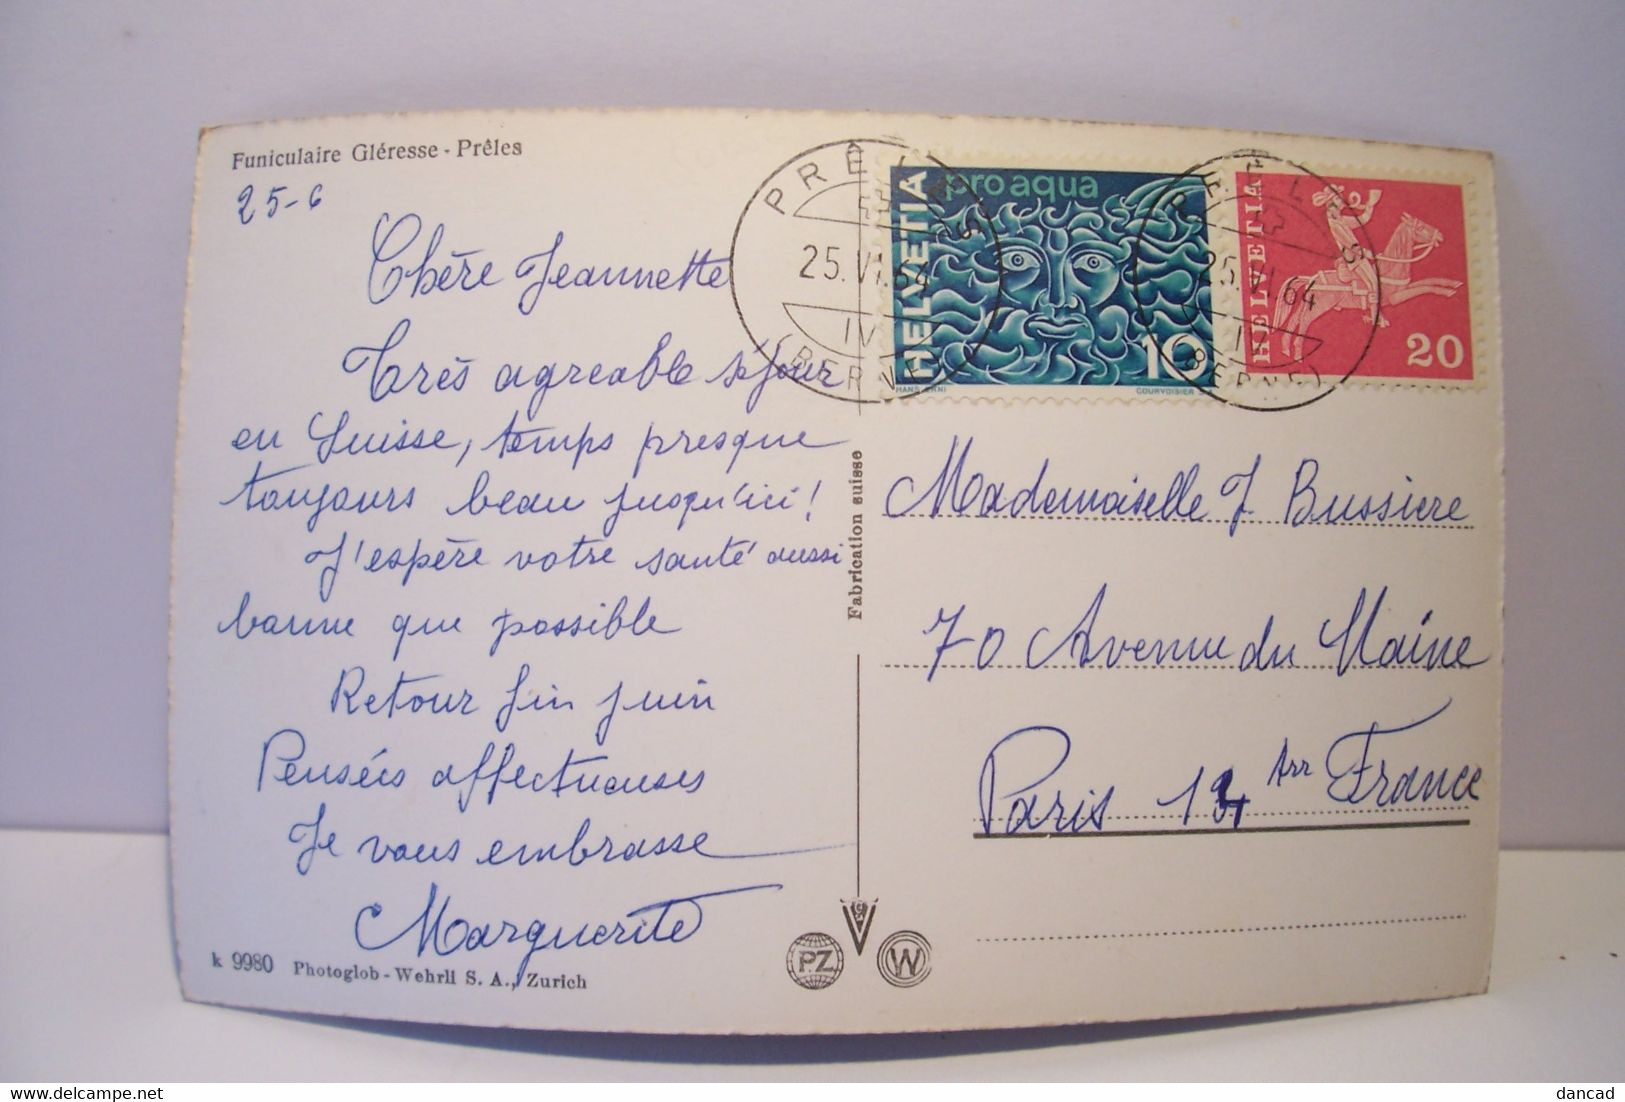 Funiculaire Gléresse - Prêles
25-6
Chère Jeannette
Très agréable séjour
en Suisse, temps presque
toujours beau jusqu'ici !
J'espère votre santé aussi
bonne que possible
Retour fin juin
Pensées affectueuses
Je vous embrasse
Marguerite
k 9980 Photoglob - Wehrli S. A., Zurich
Fabrication suisse
PZ
W
PRÊLES
25.VI.64
IV
(BERNE)
HELVETIA
pro aqua
10
HANS ERNI
COURVOISIER
PRÊLES
25.VI.64
(BERNE)
HELVETIA
20
Mademoiselle J Bussiere
70 Avenue du Maine
Paris 14 Arr France
dancad